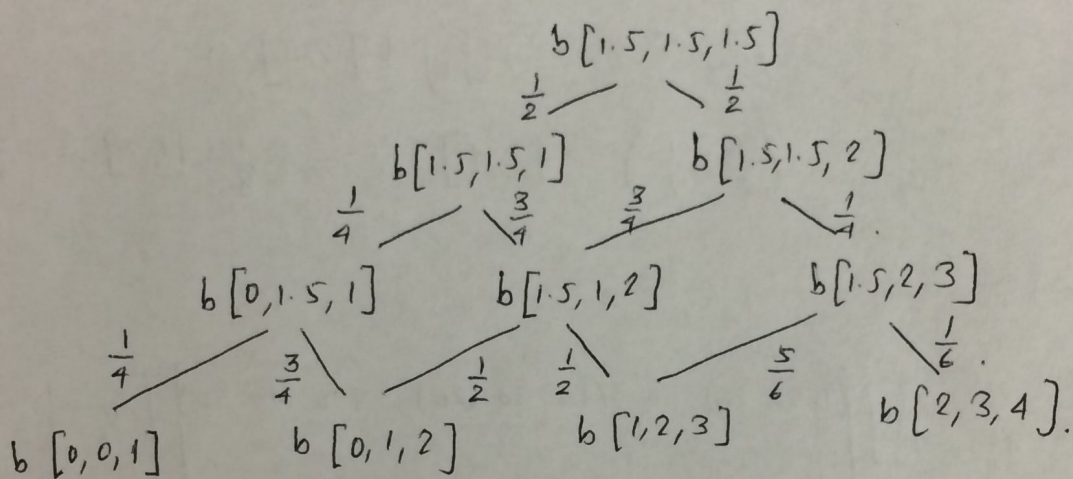 b [1.5, 1.5, 1.5]
1/2 1/2
b [1.5, 1.5, 1] b [1.5, 1.5, 2]
1/4 3/4 3/4 1/4 .
b [0, 1.5, 1] b [1.5, 1, 2] b [1.5, 2, 3]
1/4 3/4 1/2 1/2 5/6 1/6 .
b [0, 0, 1] b [0, 1, 2] b [1, 2, 3] b [2, 3, 4] .